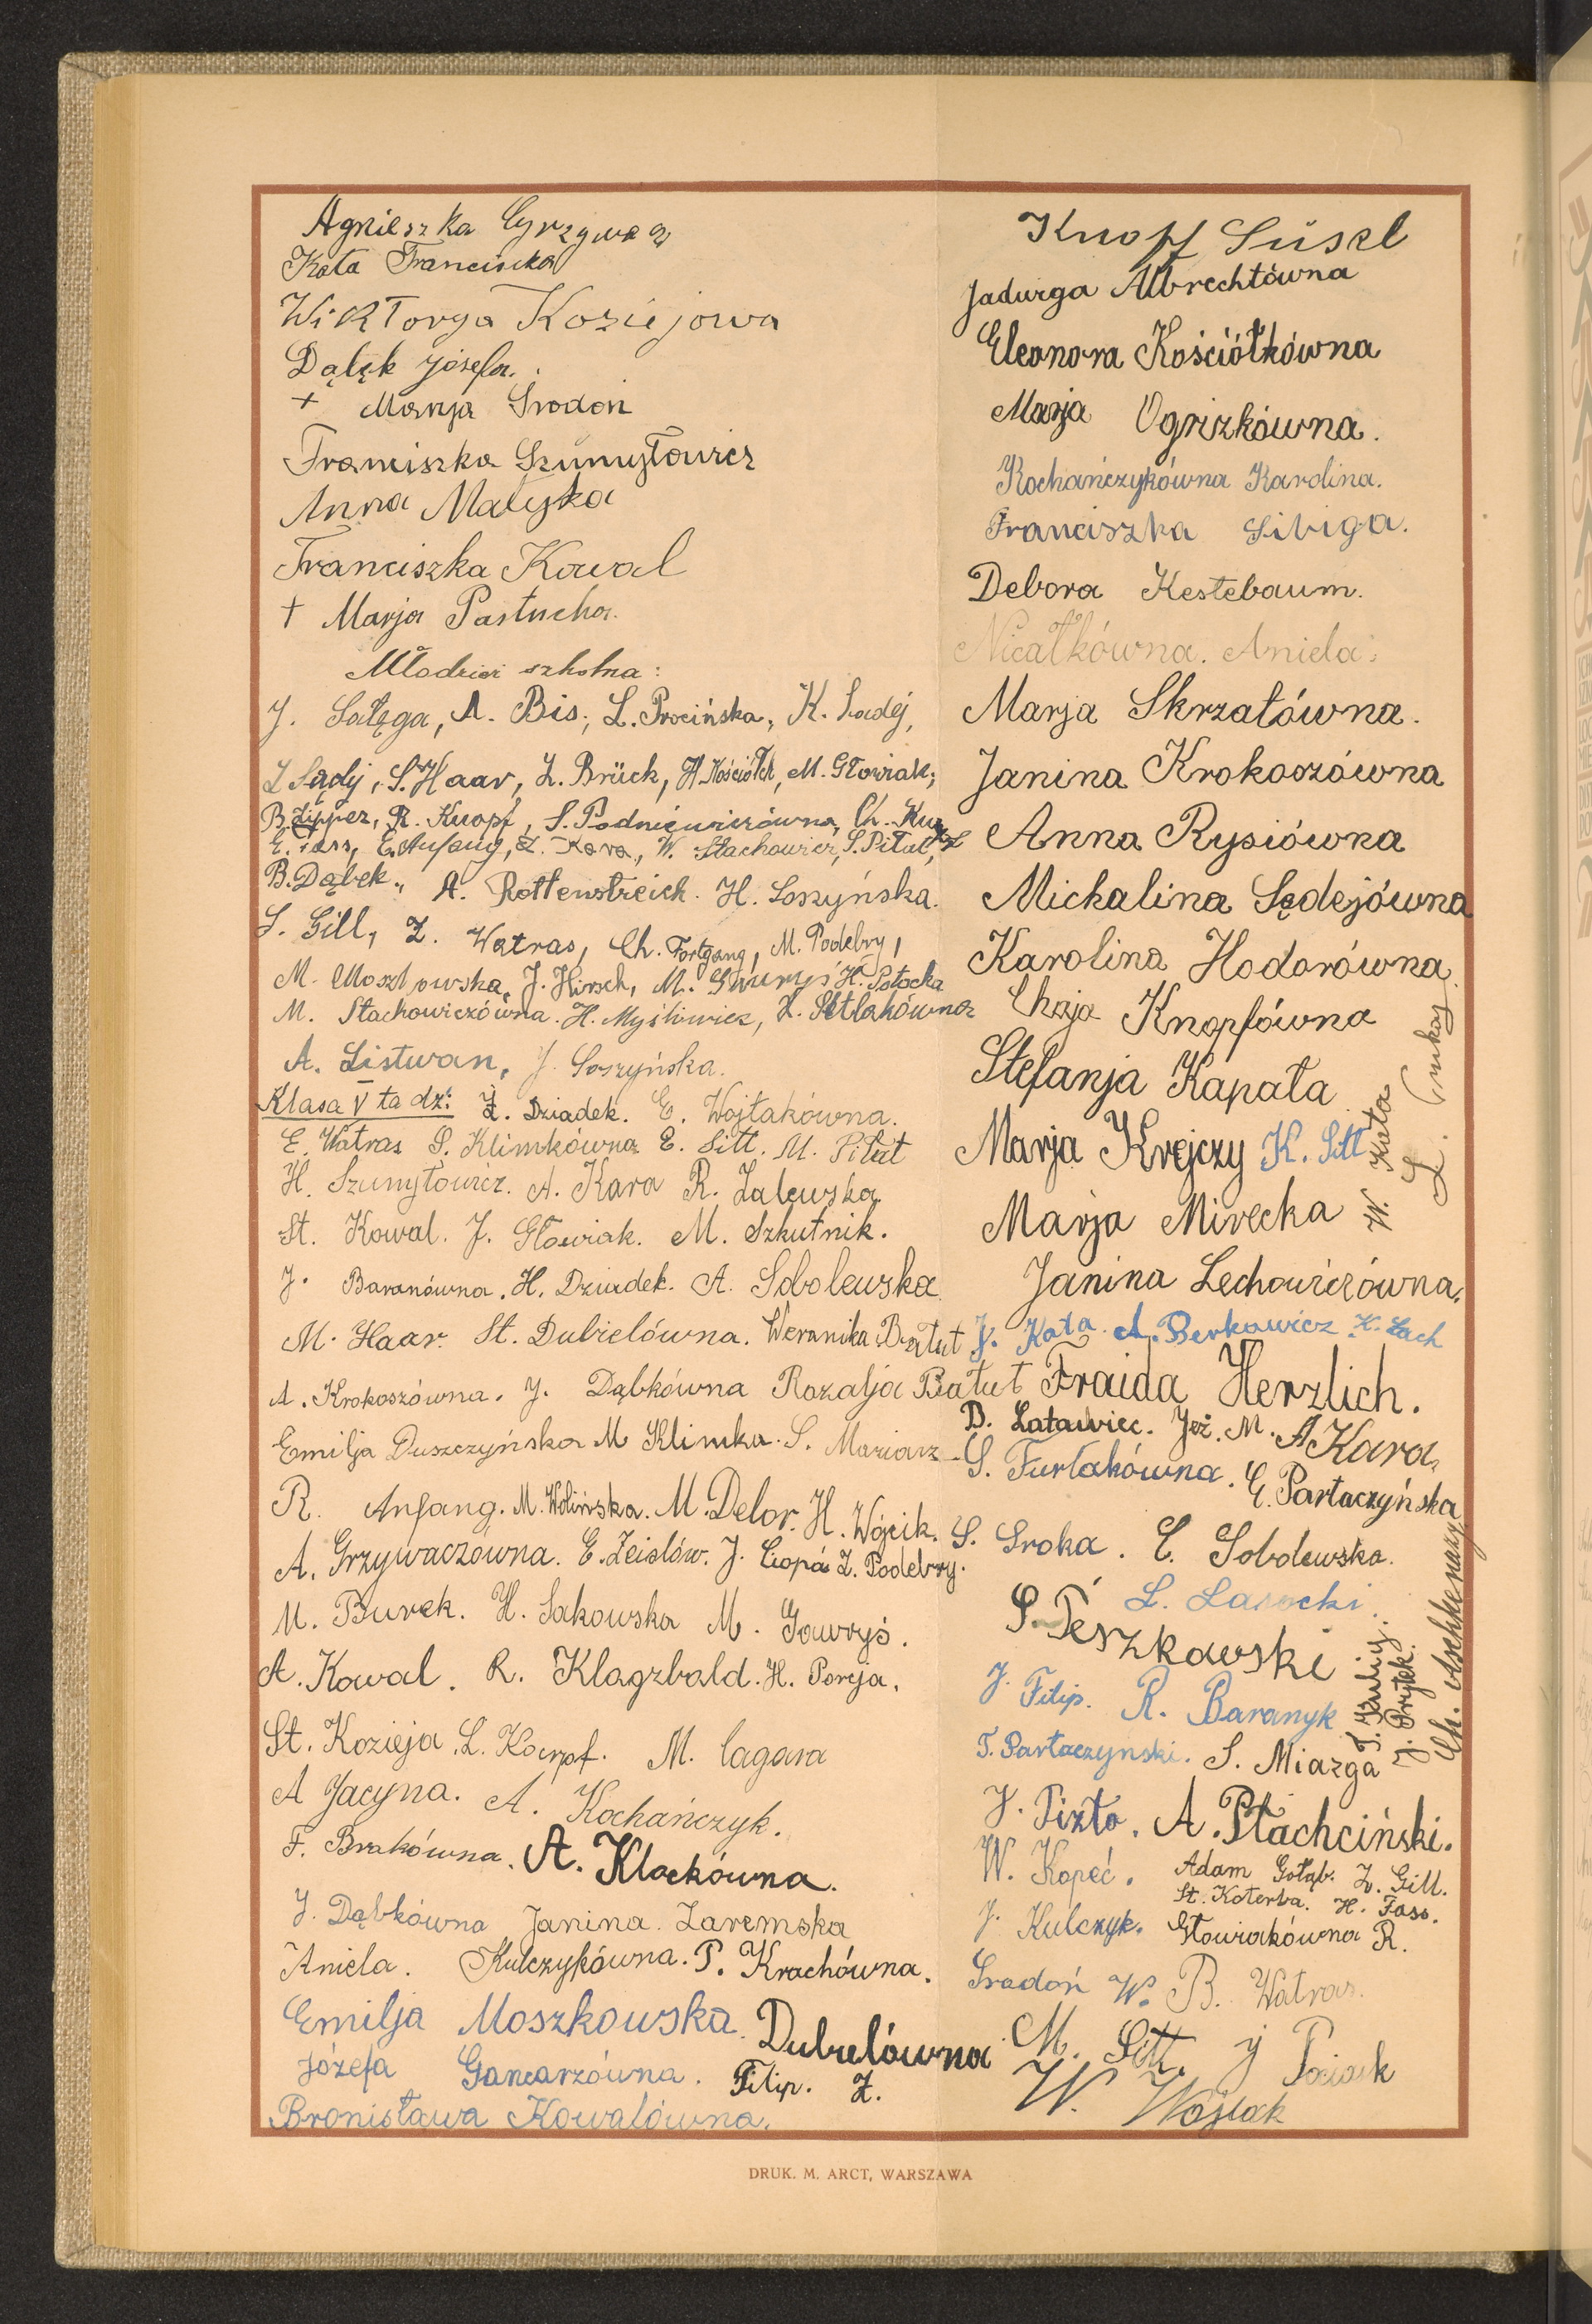 Agnieszka Grzywacz
Kata Franciszka
Wiktorya Koziejowa
Dąlęk Józefa.
+ Marja Srodoń
Franciszka Szumyłowicz
Anna Matyka
Franciszka Kowal
† Marja Pastucha.
Młodzież szkolna:
J. Sałęga, A. Bis, L. Procińska, K. Sadej,
Z Sądej, S. Haar, L. Brück, H. Kościółek, M. Głowiak,
B. Lipper, R. Knopf, S. Podniewiczówna, Ch. Kurz
E. Fass, E. Anfang, Z. Kara, W. Stachowicz, S. Piłat,
B. Dąbek., A. Rottenstreich. H. Soszyńska.
S. Gill, Z. Watras, Ch. Fortgang, M. Podebry,
M. Moszkowska, J. Hirsch, M. Gawryś H. Potocka
M. Stachowiczówna. H. Myśliwiec, Z. Setlakówna
A. Listwan, J. Soszyńska.
Klasa V ta dz: Z. Dziadek. E. Wojtakówna.
E. Watras S. Klimkówna E. Sitt. M. Piłat
H. Szumyłowicz. A. Kara R. Zalewska
St. Kowal. J. Głowiak. M. Szkutnik.
J. Baranówna. H. Dziadek. A. Sobolewska
M. Haar. St. Dubielówna. Weranika Batut
A. Krokoszówna. J. Dąbkówna Rozalja Batut
Emilja Duszczyńska M Klimka. S. Mariarz
R. Anfang. M. Wolińska. M. Delor. H. Wójcik.
A. Grzywaczówna. E. Zeislów. J. Ciopa Z. Podebry.
M. Burek. H. Sakowska M. Gawryś.
A. Kowal. R. Klagzbald. H. Poreja.
St. Kozieja. L. Knopf. M. Cagara
A Jacyna. A. Kochańczyk.
F. Brakówna. A. Klockówna.
J. Dąbkówna Janina. Zaremska
Aniela. Kulczykówna. P. Krachówna.
Emilja Moszkowska. Dubielówna
Józefa Gancarzówna. Filip. Z.
Bronisława Kowalówna.
Knopf Süsel
Jadwiga Albrechtówna
Eleonora Kościółkówna
Marja Ogrizkówna.
Kochańczykówna Karolina.
Franciszka Sibiga.
Debora Kestebaum.
Nicałkówna. Aniela.
Marja Skrzatówna.
Janina Krokoszówna
Anna Rysiówna
Michalina Sędejówna
Karolina Hodorówna.
Chaja Knopfówna
Stefanja Kapała
Marja Krejczy K. Sitt
W. Kata
Marja Mirecka
Janina Lechowiczówna.
J. Kata. A. Berkowicz K. Łach
Fraida Herzlich.
B. Latawiec. Jeż. M. A Kara,
S. Furlakówna. E. Partaczyńska
S. Sroka. E. Sobolewska.
L. Lasocki.
S. Peszkowski
J. Filip. R. Baranyk
J. Prytek.
Ch. Aschkenazy
T. Partaczynski. S. Miazga
J. Pizło. A. Płachciński.
W. Kopeć. Adam Gołąb. Z. Gill.
St. Koterba. H. Fass.
J. Kulczyk. Głowiakówna R.
Sradoń W. B. Watras.
M. Sitt. J Pociask
W. Wójtak
DRUK. M. ARCT, WARSZAWA